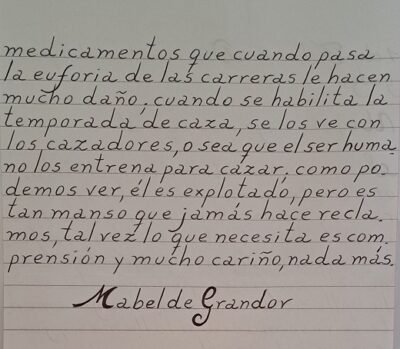 medicamentos que cuando pasa
la euforia de las carreras le hacen
mucho daño, cuando se habilita la
temporada de caza, se los ve con
los cazadores, o sea que el ser huma-
no los entrena para cazar, como po-
demos ver, él es explotado, pero es
tan manso que jamás hace recla.
mos, tal vez lo que necesita es com.
prensión y mucho cariño, nada más.
Mabel de Grandor